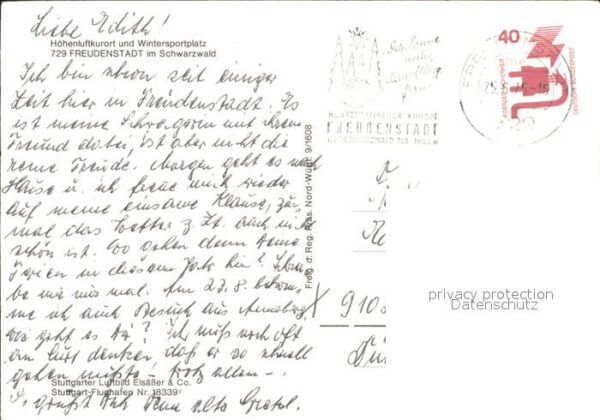 Liebe Edith!
Höhenluftkurort und Wintersportplatz
729 FREUDENSTADT im Schwarzwald
Ich bin schon seit einiger
Zeit hier in Freudenstadt. Es
ist meine Schwägerin mit ihrem
Freund dabei, ist aber nicht die
reine Freude. Morgen geht es nach
Hause u. ich freue mich wieder
auf meine einsame Klause, zu-
mal das Wetter z. Zt. auch nicht
schön ist. Wo gehen denn Deine
Ferien in diesem Jahr hin? Schrei-
be mir mal. Am 23.8. bekom-
me ich auch Besuch aus Annaberg.
Wie geht es Dir? Ich muß noch oft
an Curt denken, daß er so schnell
gehen mußte! – trotz allem –.
Stuttgarter Luftbild Elsäßer & Co.
Stuttgart-Flughafen Nr. 18339
Es grüßt Dich Deine alte Gretel.
Freig. d. Reg. Präs. Nord-Württ. 9/1608
Der Sonne
FREUDENSTADT
IM SCHWARZWALD 700-1000 M
25.6.75-18
729
40
DEUTSCHE BUNDESPOST
X 910
privacy protection
Datenschutz